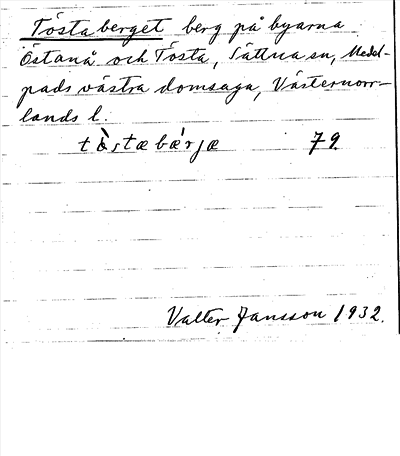 Töstaberget berg på byarna
Östanå och Tösta, Sättna sn, Medel-
pads västra domsaga, Västernorr-
lands l.
tö̀stæbǽrjæ 79.
Valter Jansson 1932.